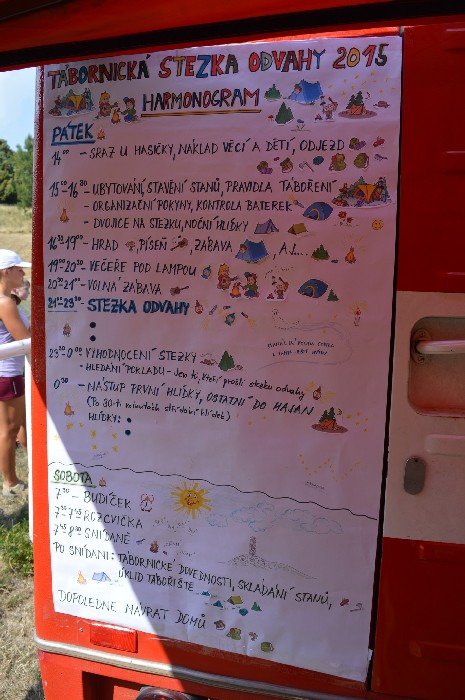 TÁBORNICKÁ STEZKA ODVAHY 2015
HARMONOGRAM
PÁTEK
14⁰⁰ - SRAZ U HASIČKY, NÁKLAD VĚCÍ A DĚTÍ, ODJEZD
15¹⁰-16³⁰ - UBYTOVÁNÍ, STAVĚNÍ STANŮ, PRAVIDLA TÁBOŘENÍ
- ORGANIZAČNÍ POKYNY, KONTROLA BATEREK
- DVOJICE NA STEZKU, NOČNÍ HLÍDKY
16³⁰-19⁰⁰ - HRAD, PÍSEŇ, ZÁBAVA, AJ...
19⁰⁰-20³⁰ - VEČEŘE POD LAMPOU
20³⁰-21⁰⁰ - VOLNÁ ZÁBAVA
21⁰⁰-23³⁰ STEZKA ODVAHY
23³⁰-0⁰⁰ VYHODNOCENÍ STEZKY
- HLEDÁNÍ POKLADU - Jen ti, kteří prošli stezku odvahy
0³⁰ - NÁSTUP PRVNÍ HLÍDKY, OSTATNÍ DO HAJAN
(Po 30-ti minutách střídání hlídek)
HLÍDKY:
SOBOTA
7³⁰ - BUDÍČEK
7³⁰-7⁴⁵ ROZCVIČKA
7⁴⁵-8³⁰ SNÍDANĚ
PO SNÍDANI: TÁBORNICKÉ DOVEDNOSTI, SKLÁDÁNÍ STANŮ,
ÚKLID TÁBOŘIŠTĚ
DOPOLEDNE NÁVRAT DOMŮ